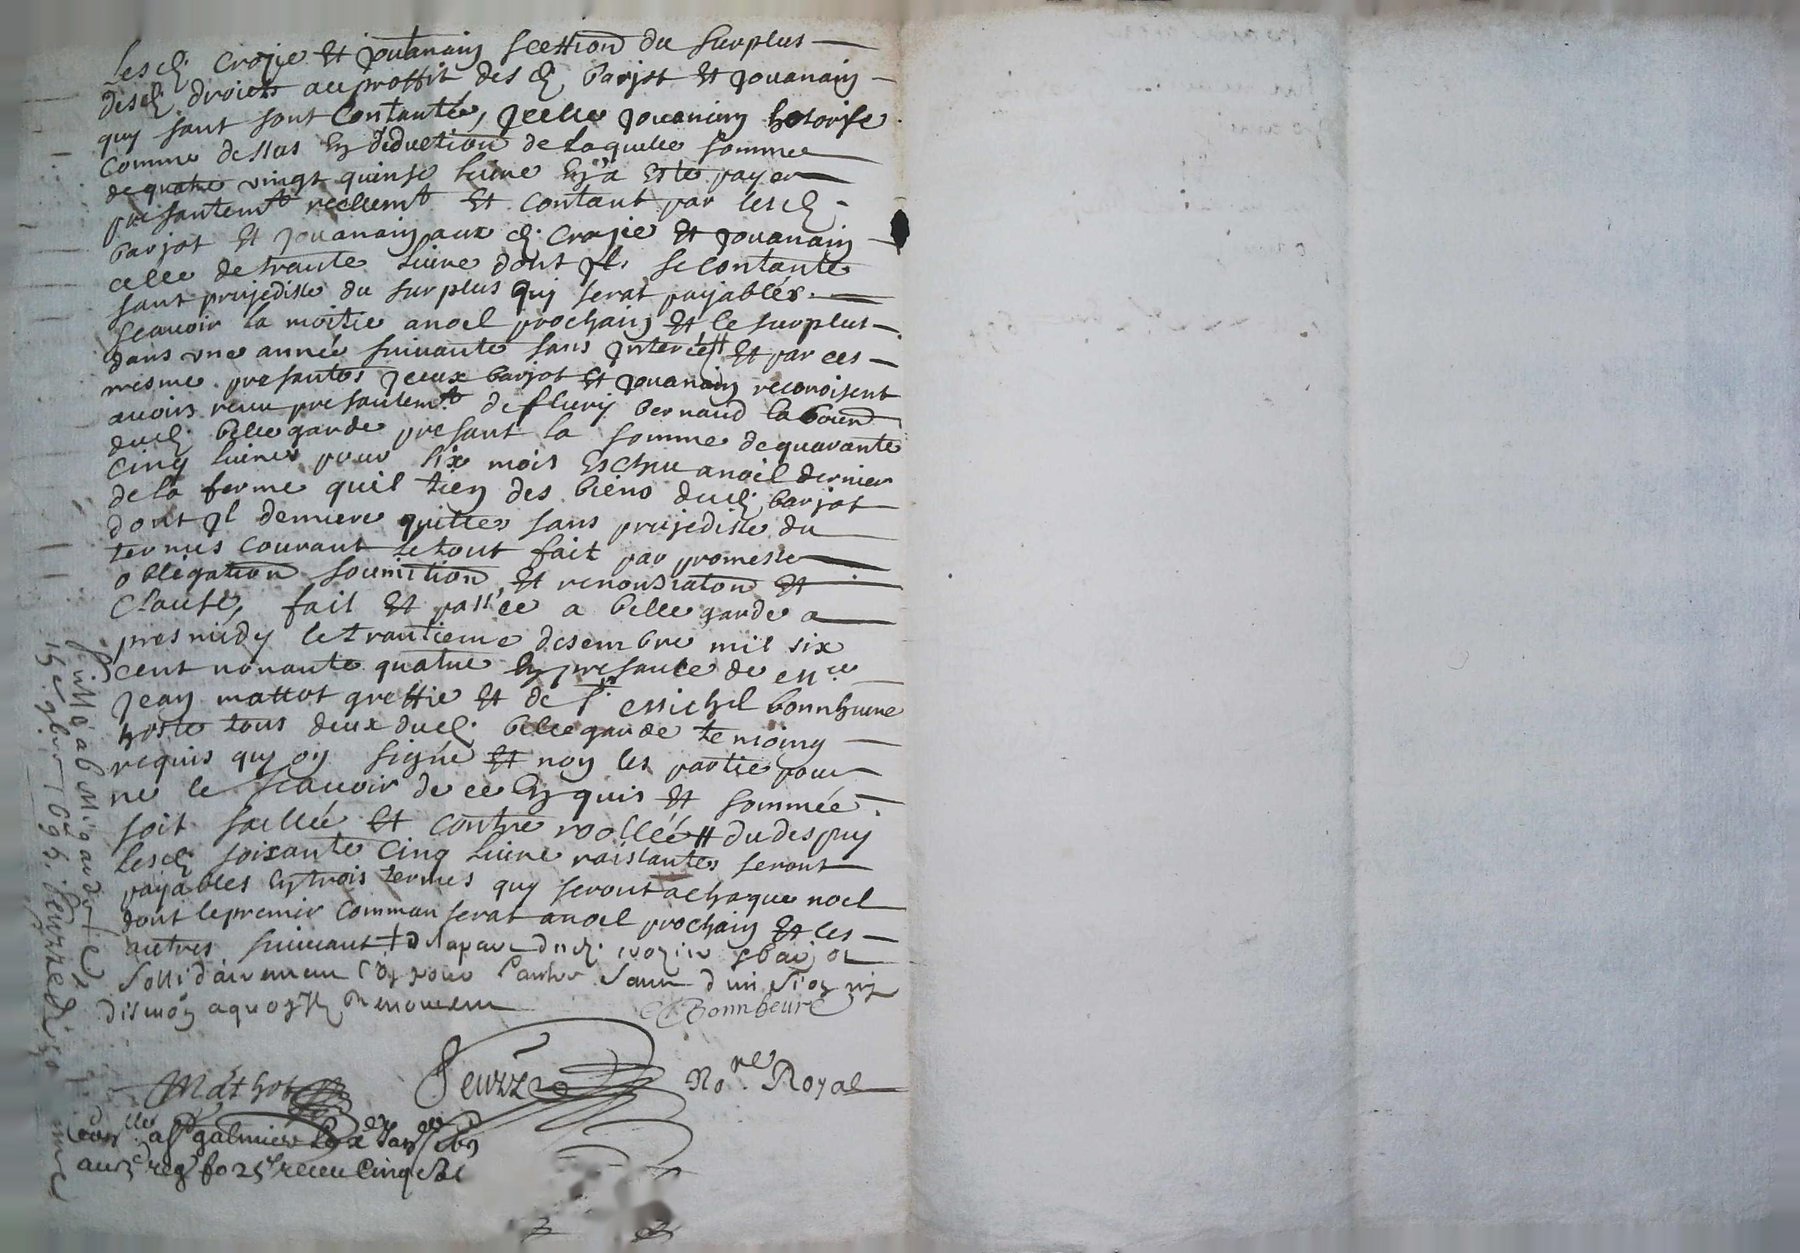 Lesd. Crozie et Jouanain scession du surplus
desd. droicts au proffit desd. barjot et Jouanain
quy sant sont Contanté, Jcelle Jouanain hotorise
Comme dessus en déduction de laquelle somme
de quatre vingt quinse livre en a esté payer
presantemt reellemt et contant par lesd.
barjot et Jouanain aux d. Crozie et Jouanain
celle de trante livre dont Jls se contante
sant prejedisse du surplus quy serat payables
scavoir la moitié a noel prochain et le surplus
dans une année suivante sans Jnterest et par ces
mesme presantes Jceux barjot et Jouanain reconoisent
avoirs receu presantemt de fleury bernaud
dud. bellegarde presant la somme de quarante
Cinq livres pour six mois Escheu a noel dernier
de la ferme quil tien des biens dud. barjot
dont Jl demeure quittes sans prejedisse du
termes courant le tout fait par promesse
obligation soumition et renonsiaton et
Clause, fait et passée a belle garde a
pres midy le trantieme desembre mil six
cent nonante quatre en presance de
Jean mattot greffie et de sr michel bonnheure
hoste tous deux dud. bellegarde temoing
requis quy on signé et non les partie pour
ne le scavoir de ce enquis et sommée
soit scellée et contre roollée # du despuy
lesd. soixante Cinq livre raistantes seront
payables en trois termes quy seront a chaque noel
dont le premier Commanserat a noel prochain et les
autres suivant + de la part dud. crozie barjot
sollidairemen l'un pour l'autre sans
Bonnheure
Mathot
No.re Royal
a st galmier
au reg. fo 25 receu Cinq sol